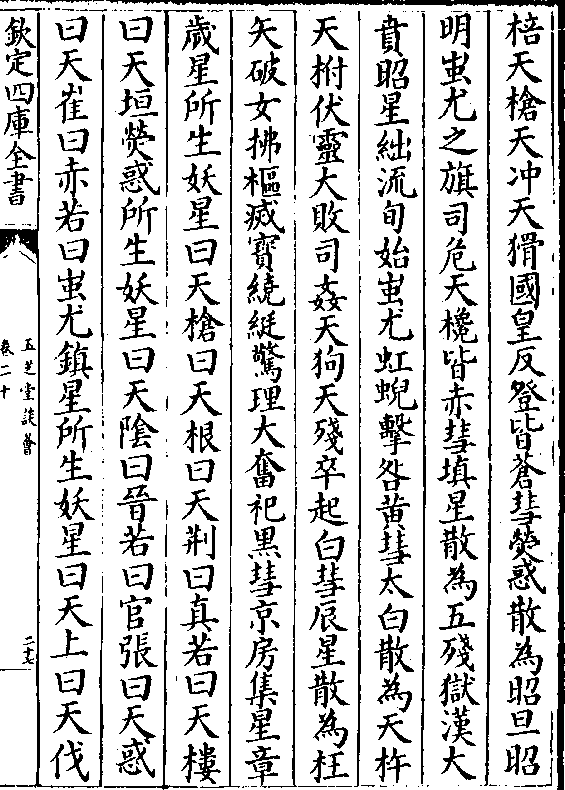 棓天槍天冲天猾國皇反登皆蒼彗熒惑散為昭旦昭
明蚩尤之旗司危天欃皆赤彗填星散為五殘獄漢大
賁昭星絀流旬始蚩尤虹蜺擊咎黄彗太白散為天杵
天拊伏靈大敗司姦天狗天殘卒起白彗辰星散為枉
矢破女拂樞滅寳繞綎驚理大奮祀黒彗京房集星章
歲星所生妖星曰天槍曰天根曰天荆曰真若曰天樓
曰天垣熒惑所生妖星曰天陰曰晉若曰官張曰天惑
曰天崔曰赤若曰蚩尤鎮星所生妖星曰天上曰天伐
欽定四庫全書
玉芝堂談薈
卷二十